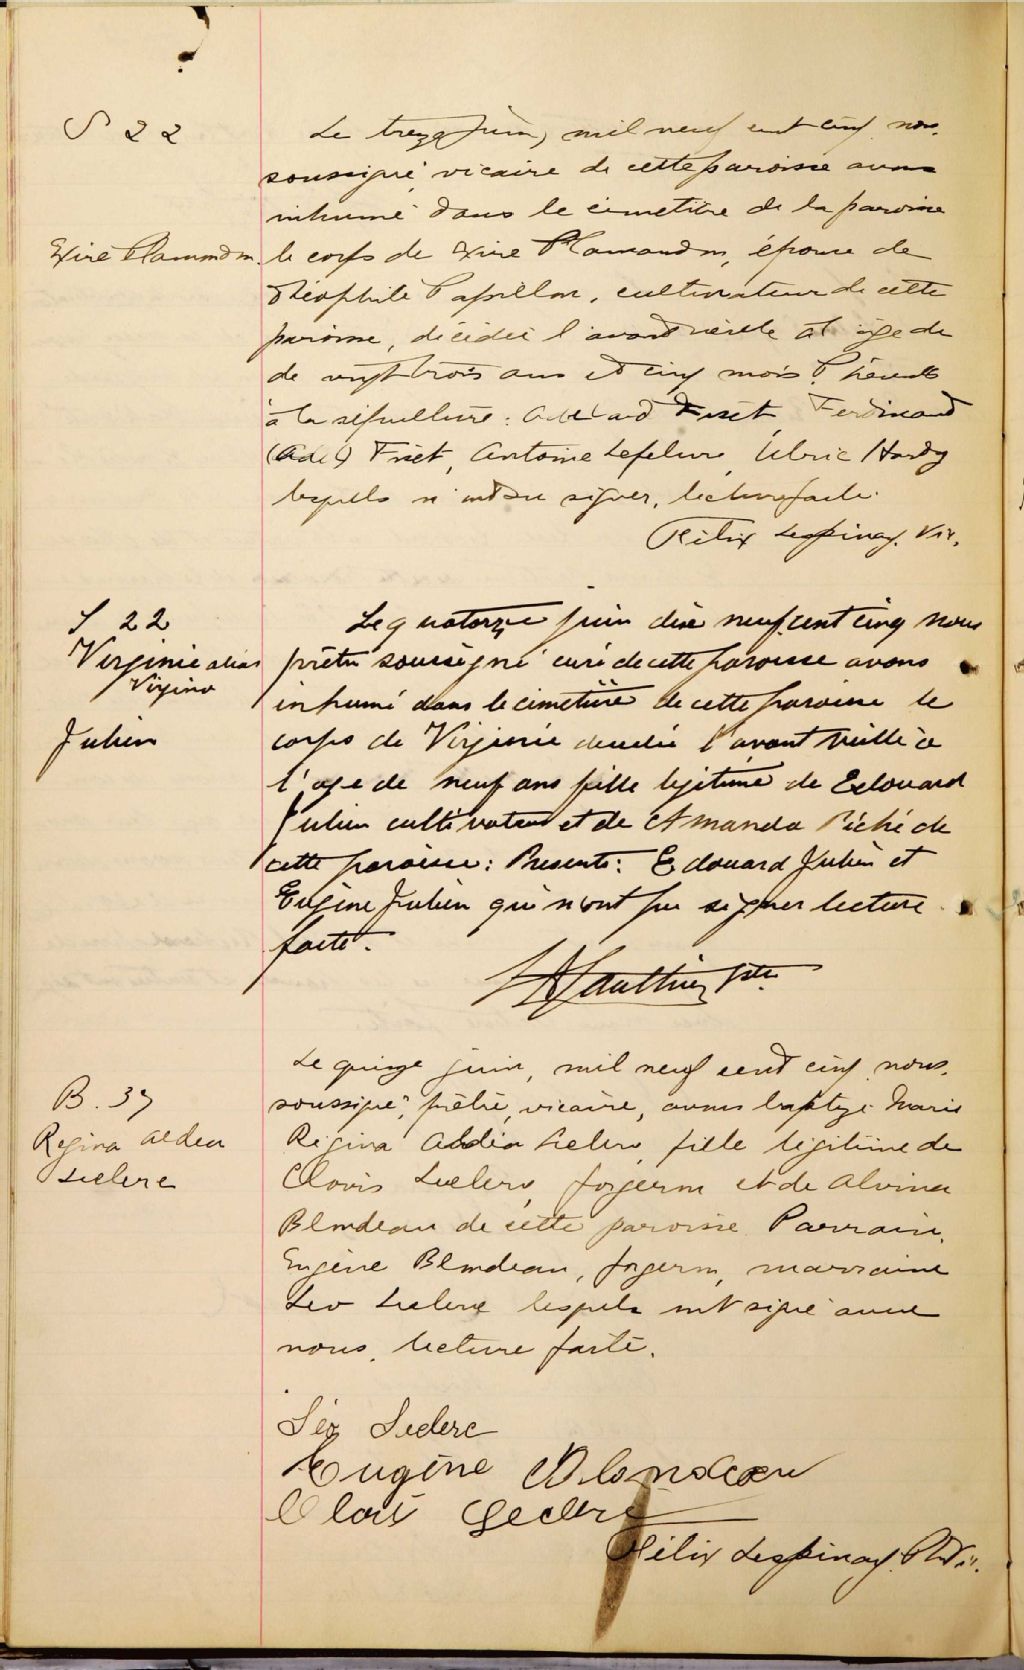 S 22
Exiré Plamondon.
Le treize Juin, mil neuf cent cinq nous.
soussigné, vicaire de cette paroisse avons
inhumé dans le cimetière de la paroisse
le corps de Exiré Plamondon, épouse de
Théophile Papillon, cultivateur de cette
paroisse, décédée l'avant veille
de vingt trois ans et cinq mois. Présents
à la sépulture: Adélard Fiset, Ferdinand
(Adel) Fiset, Antoine Lefebvre, Ulric Hardy
lesquels n'ont su signer, lecture faite.
Félix Lespinay. Vic.
S 22
Virginie alias
Virgina
Julien
Le quatorze juin dix neuf cent cinq nous
prêtre soussigné curé de cette paroisse avons
inhumé dans le cimetière de cette paroisse le
corps de Virginie décédée l'avant veille à
l'age de neuf ans fille légitime de Edouard
Julien cultivateur et de Amanda Piché de
cette paroisse: Presents: Edouard Julien et
Eugène Julien qui n'ont pu signer lecture
faite.
Gauthier ptre
B. 37
Regina Aldea
Leclerc
Le quinze juin, mil neuf cent cinq nous.
soussigné, prêtre, vicaire, avons baptizé Marie
Régina Aldéa Leclerc, fille légitime de
Clovis Leclerc, forgeron et de Alvina
Blondeau de cette paroisse Parrain,
Eugène Blondeau, forgeron, marraine
Léo Leclerc lesquels ont signé avec
nous, lecture faite.
Léo Leclerc
Eugène Blondeau
Clovis Leclerc
Félix Lespinay. Ptr. Vic.